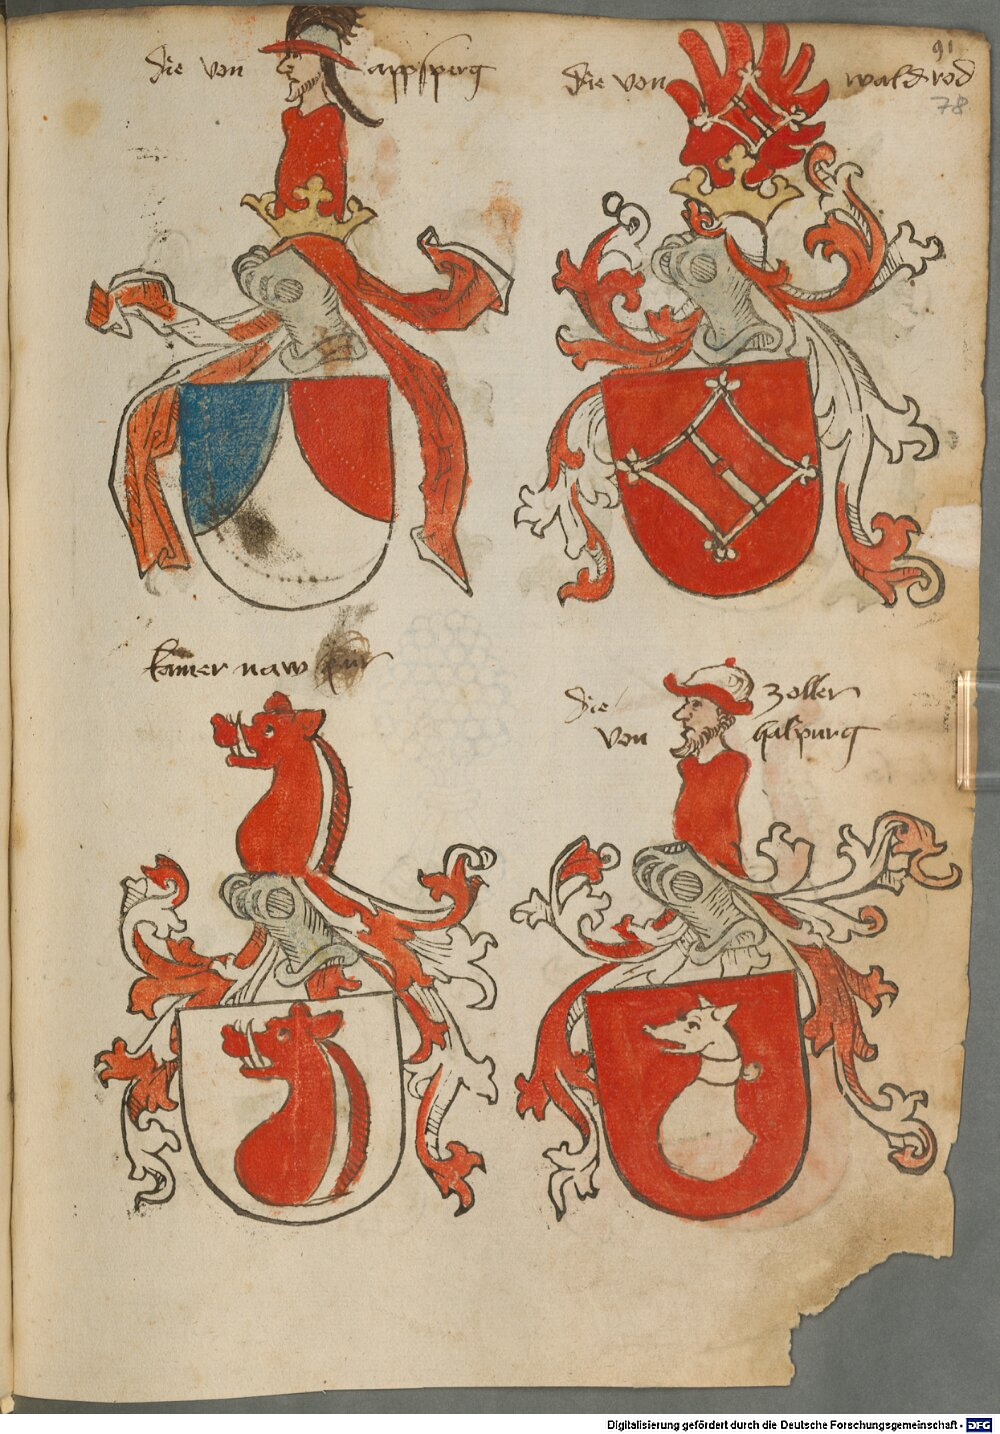 91
78
die von appsperg
die von waldrod
kamer naw
die zoller
von halspurg
Digitalisierung gefördert durch die Deutsche Forschungsgemeinschaft - DFG